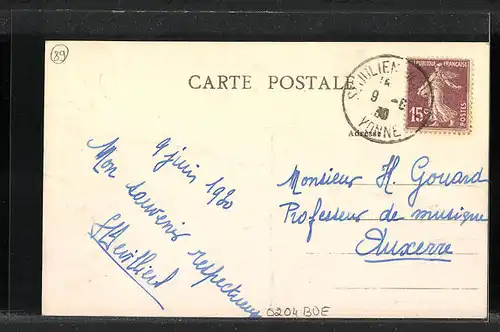 89
CARTE POSTALE
ST JULIEN
14
9 -6
30
YONNE
REPUBLIQUE FRANÇAISE
15c
POSTES
Adresse
9 juin 1930
Mon souvenir respectueux
Monsieur H. Gouard
Professeur de musique
Auxerre
0204 BDE